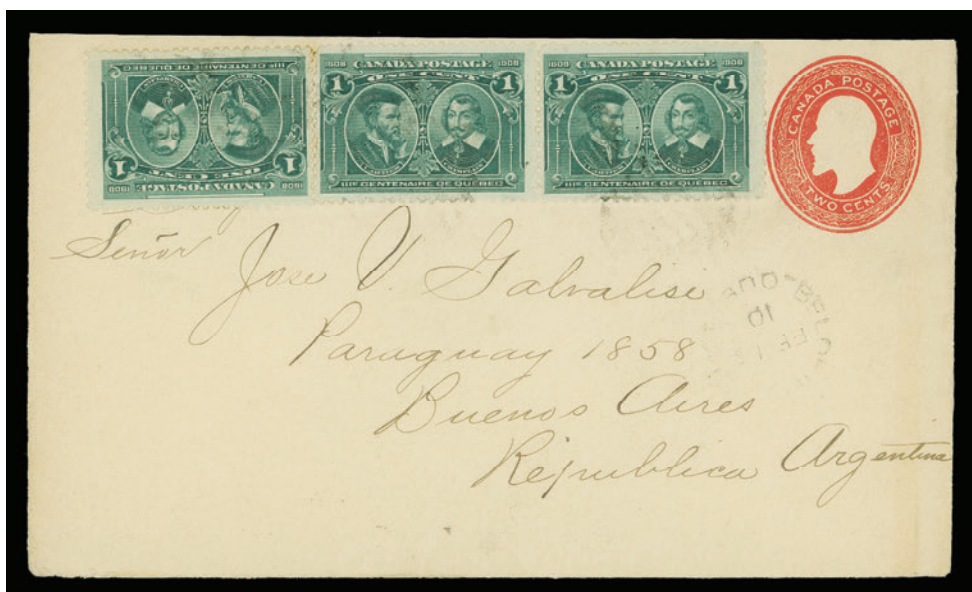 1908 CANADA POSTAGE 1908
1 ONE CENT 1
IIIᴱ CENTENAIRE DE QUEBEC
1908 CANADA POSTAGE 1908
1 ONE CENT 1
IIIᴱ CENTENAIRE DE QUEBEC
1908 CANADA POSTAGE 1908
1 ONE CENT 1
IIIᴱ CENTENAIRE DE QUEBEC
CANADA POSTAGE
TWO CENTS
Señor Jose V. Galvalisi
Paraguay 1858
Buenos Aires
Republica Argentina
10